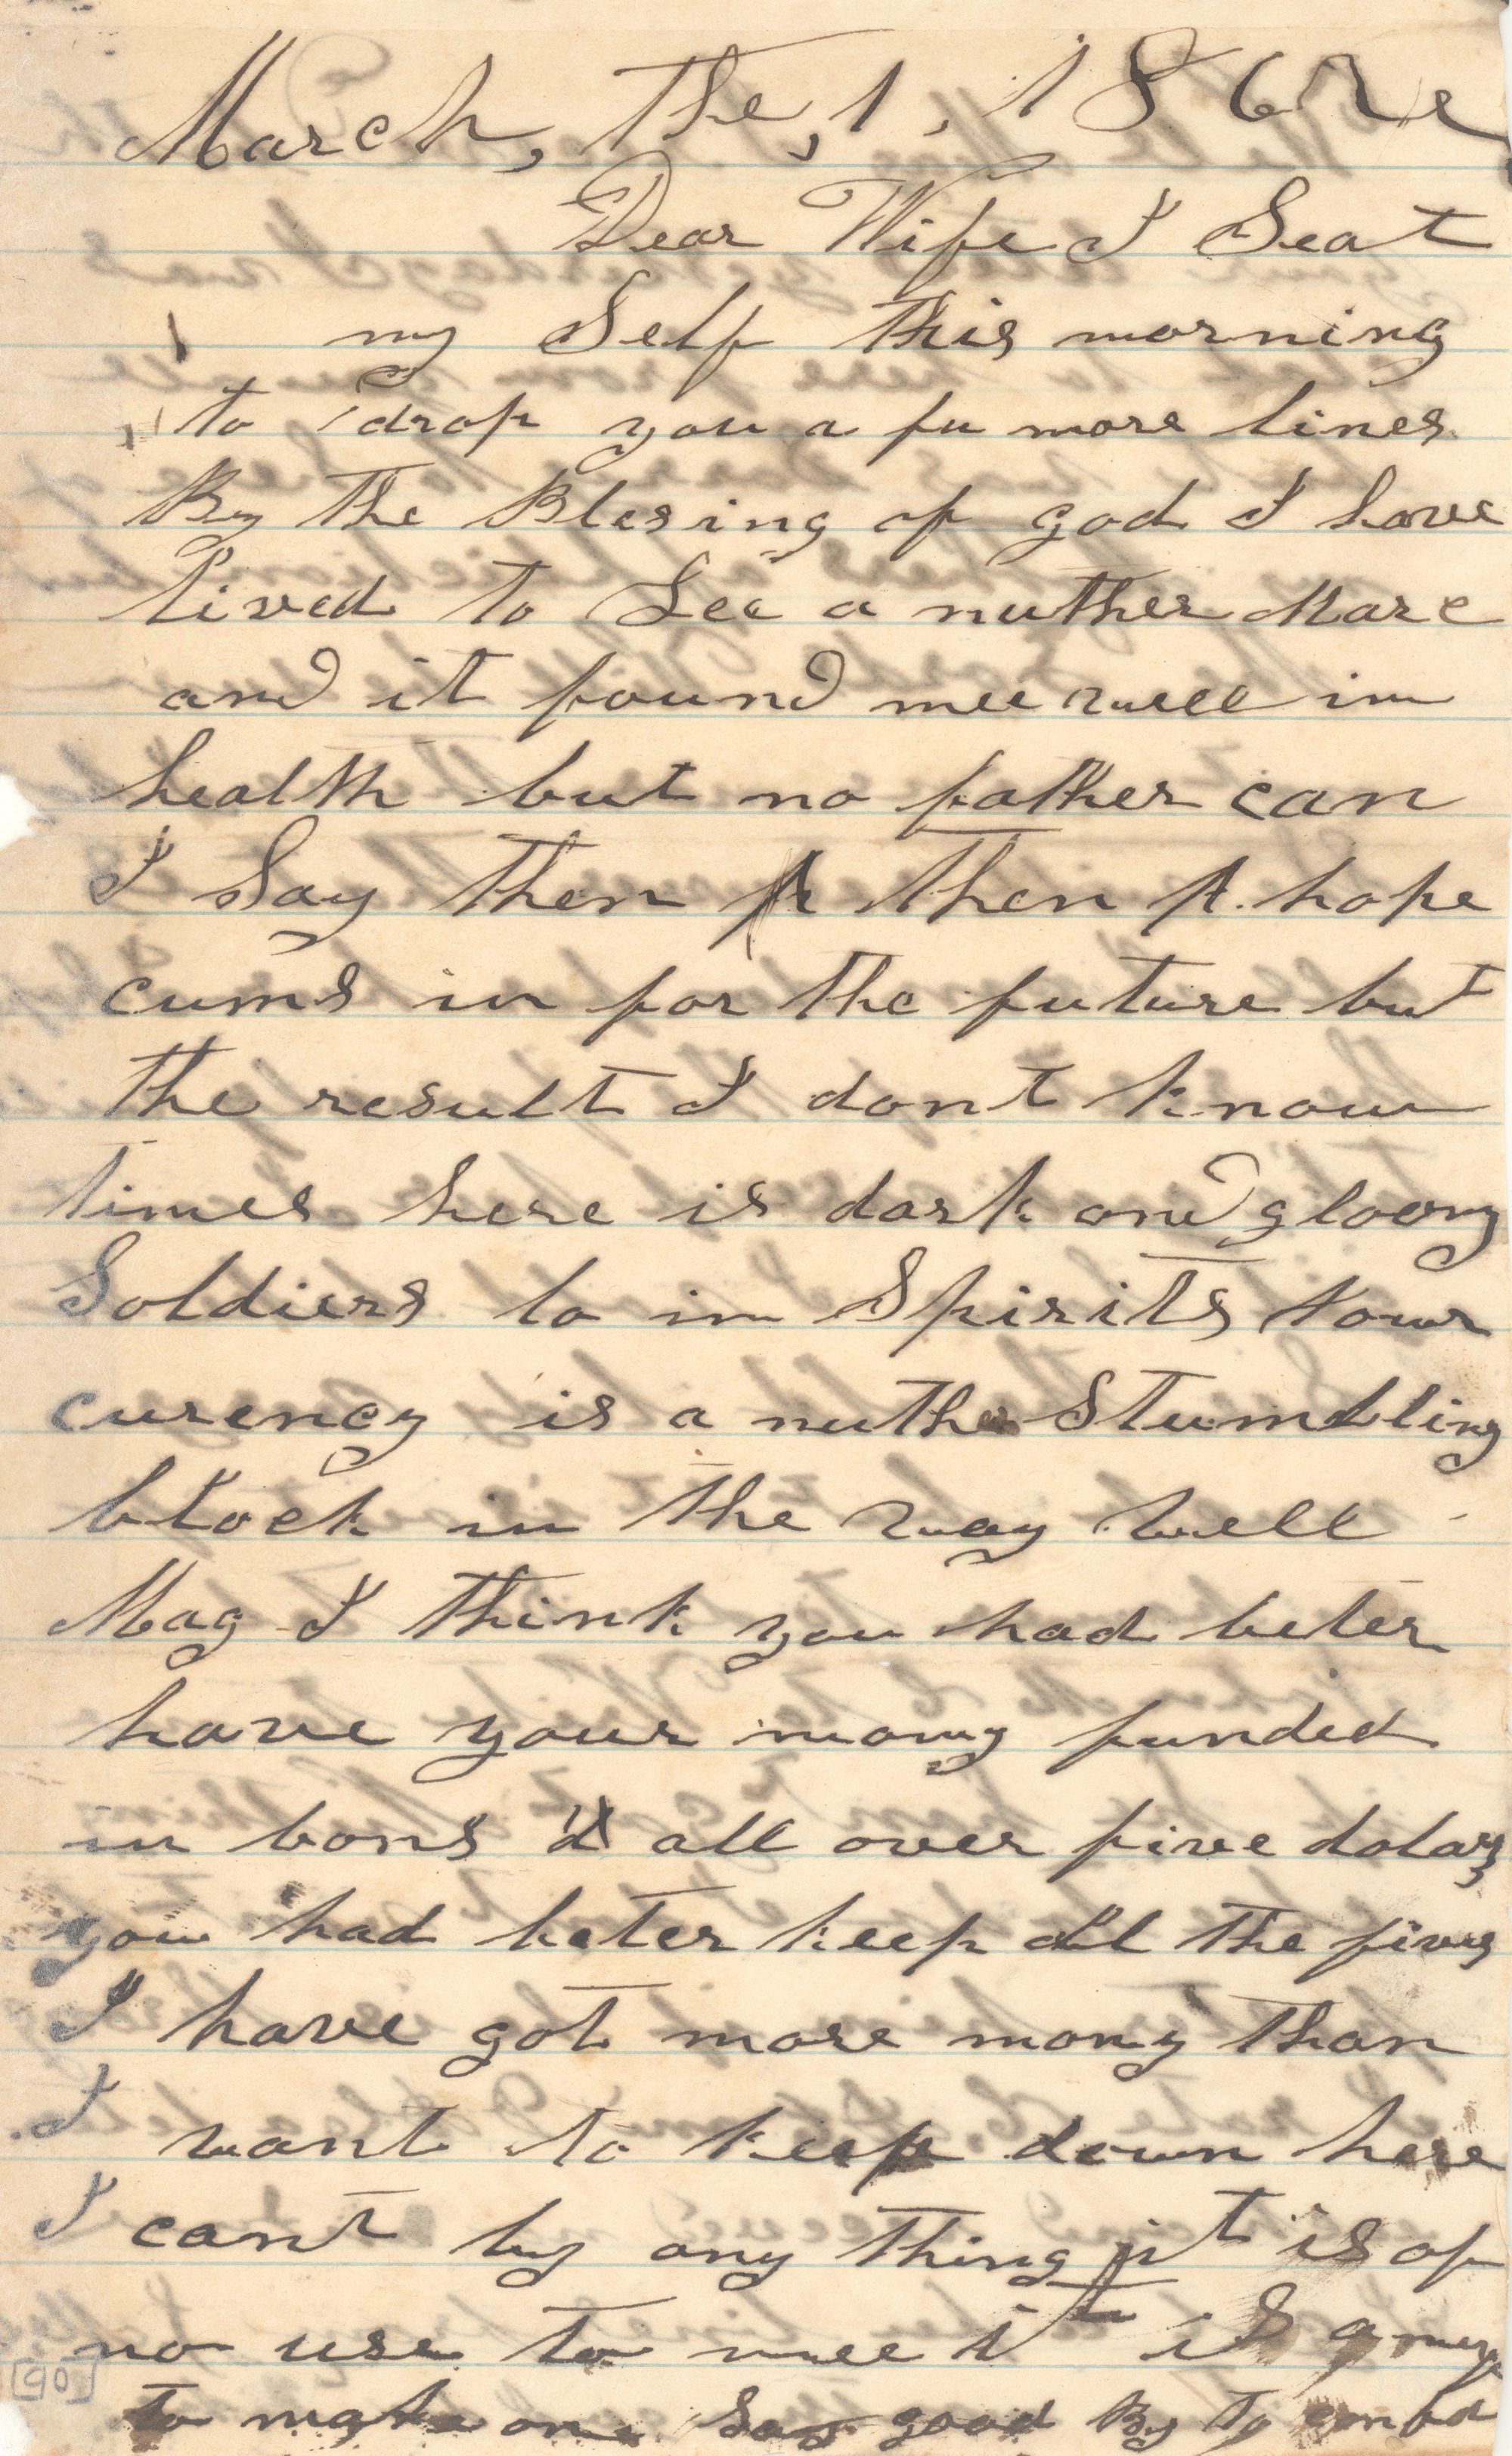 March, the, 1, 186
Dear Wife I Seat
my Self this morning
to drop you a fu more lines
By the Blesing of god I have
lived to See a nuther Marc
and it found mee well in
health but no father can
I Say then then A hope
cums in for the future but
the result I dont know
times here is dark and gloomy
Soldiers lo in Spirits &our
curency is a nuther Stumbling
block in the way well
Mag I think you had beter
have your mony funded
in bons all over five dolars
you had beter keep all the fives
I have got more mony than
I want to keep down here
I cant by any thing it is of
no use to mee it is
to make one Say good By to
[90]